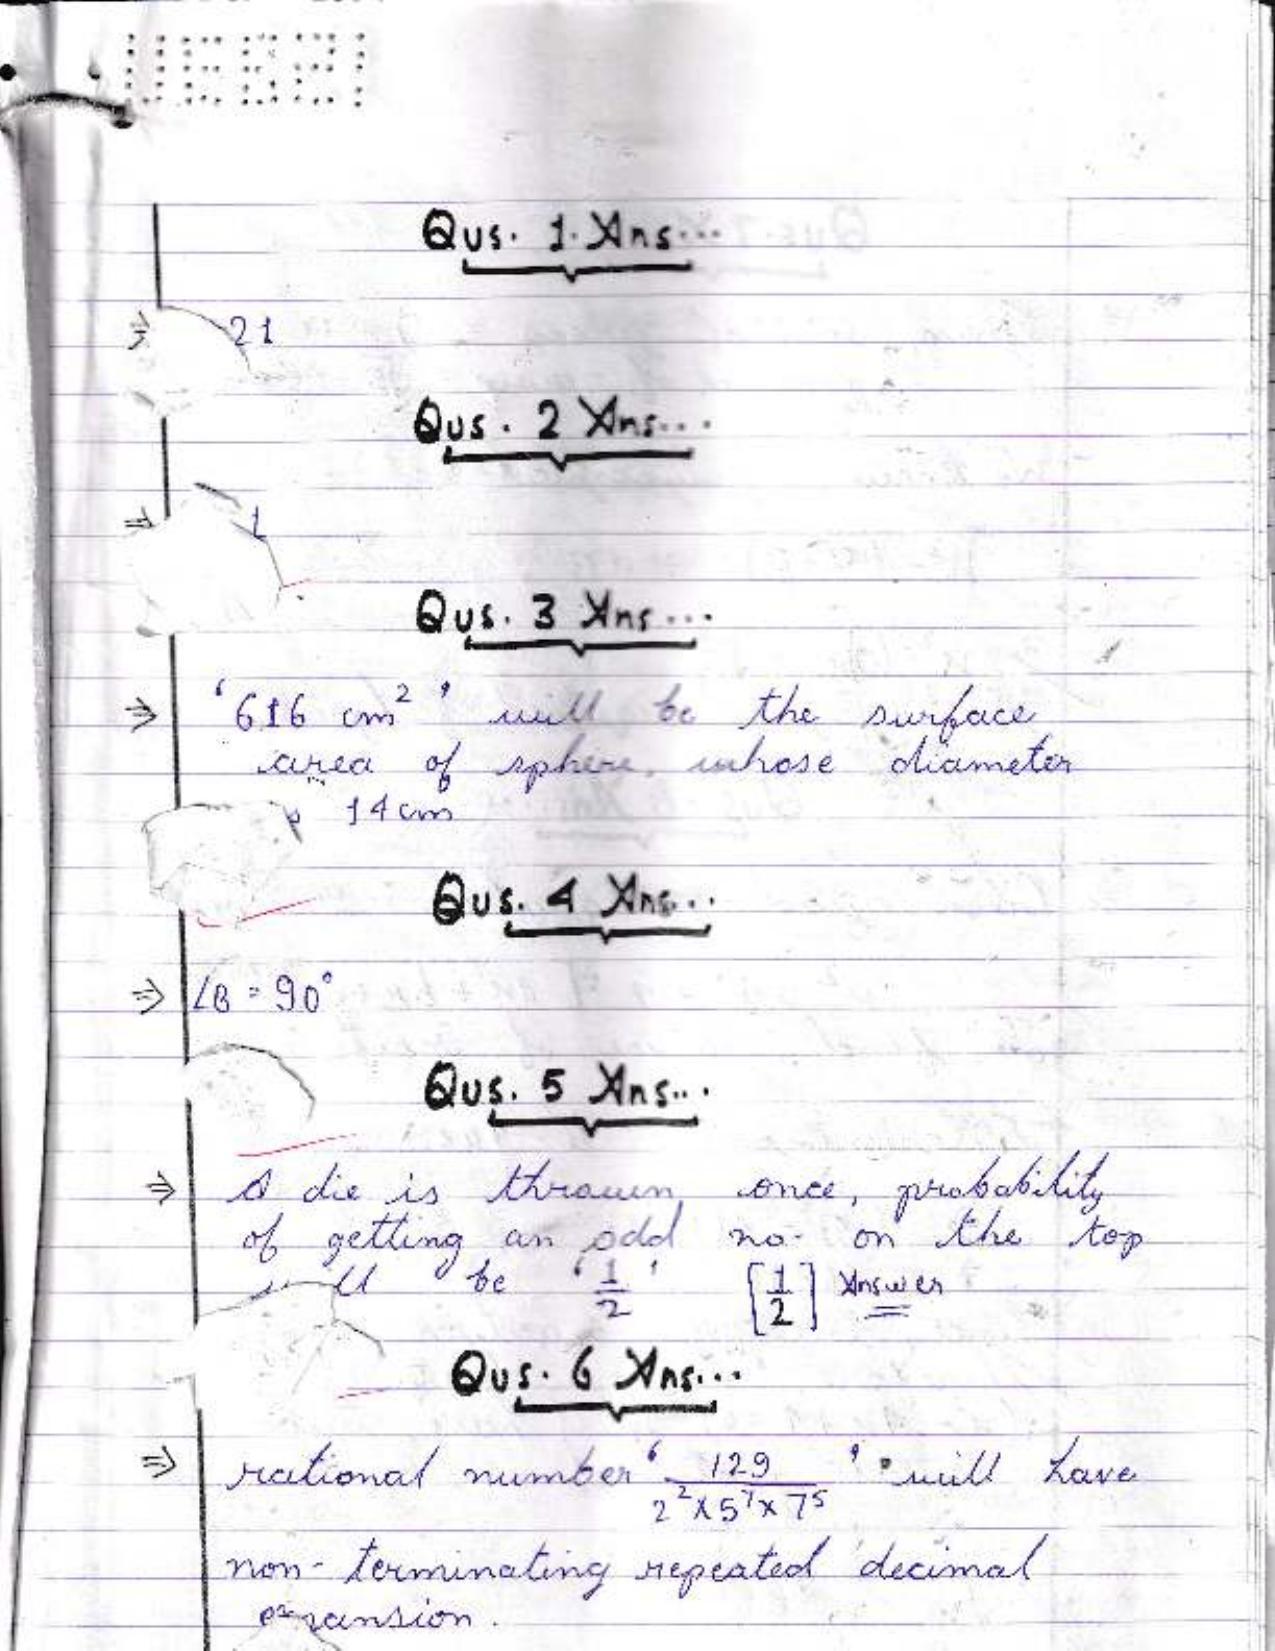 Qus. 1. Ans...
⇒ 21
Qus. 2 Ans...
⇒ 1
Qus. 3 Ans...
⇒ '616 cm²' will be the surface
area of sphere, whose diameter
14cm
Qus. 4 Ans...
⇒ ∠B = 90°
Qus. 5 Ans...
⇒ A die is thrown once, probability
of getting an odd no. on the top
be '1/2' [1/2] Answer
Qus. 6 Ans...
⇒ rational number '129/2²×5⁷×7⁵' will have
non-terminating repeated decimal
expansion.